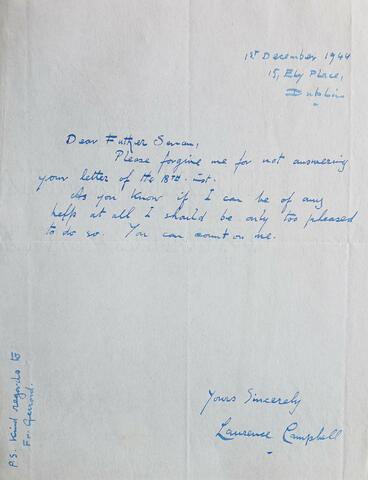 1st December 1944
15, Ely Place,
Dublin
Dear Father Senan,
Please forgive me for not answering
your letter of the 18TH inst.
As you know if I can be of any
help at all I should be only too pleased
to do so. You can count on me.
Yours Sincerely
Laurence Campbell
P.S. Kind regards to
Fr. Gerrard.